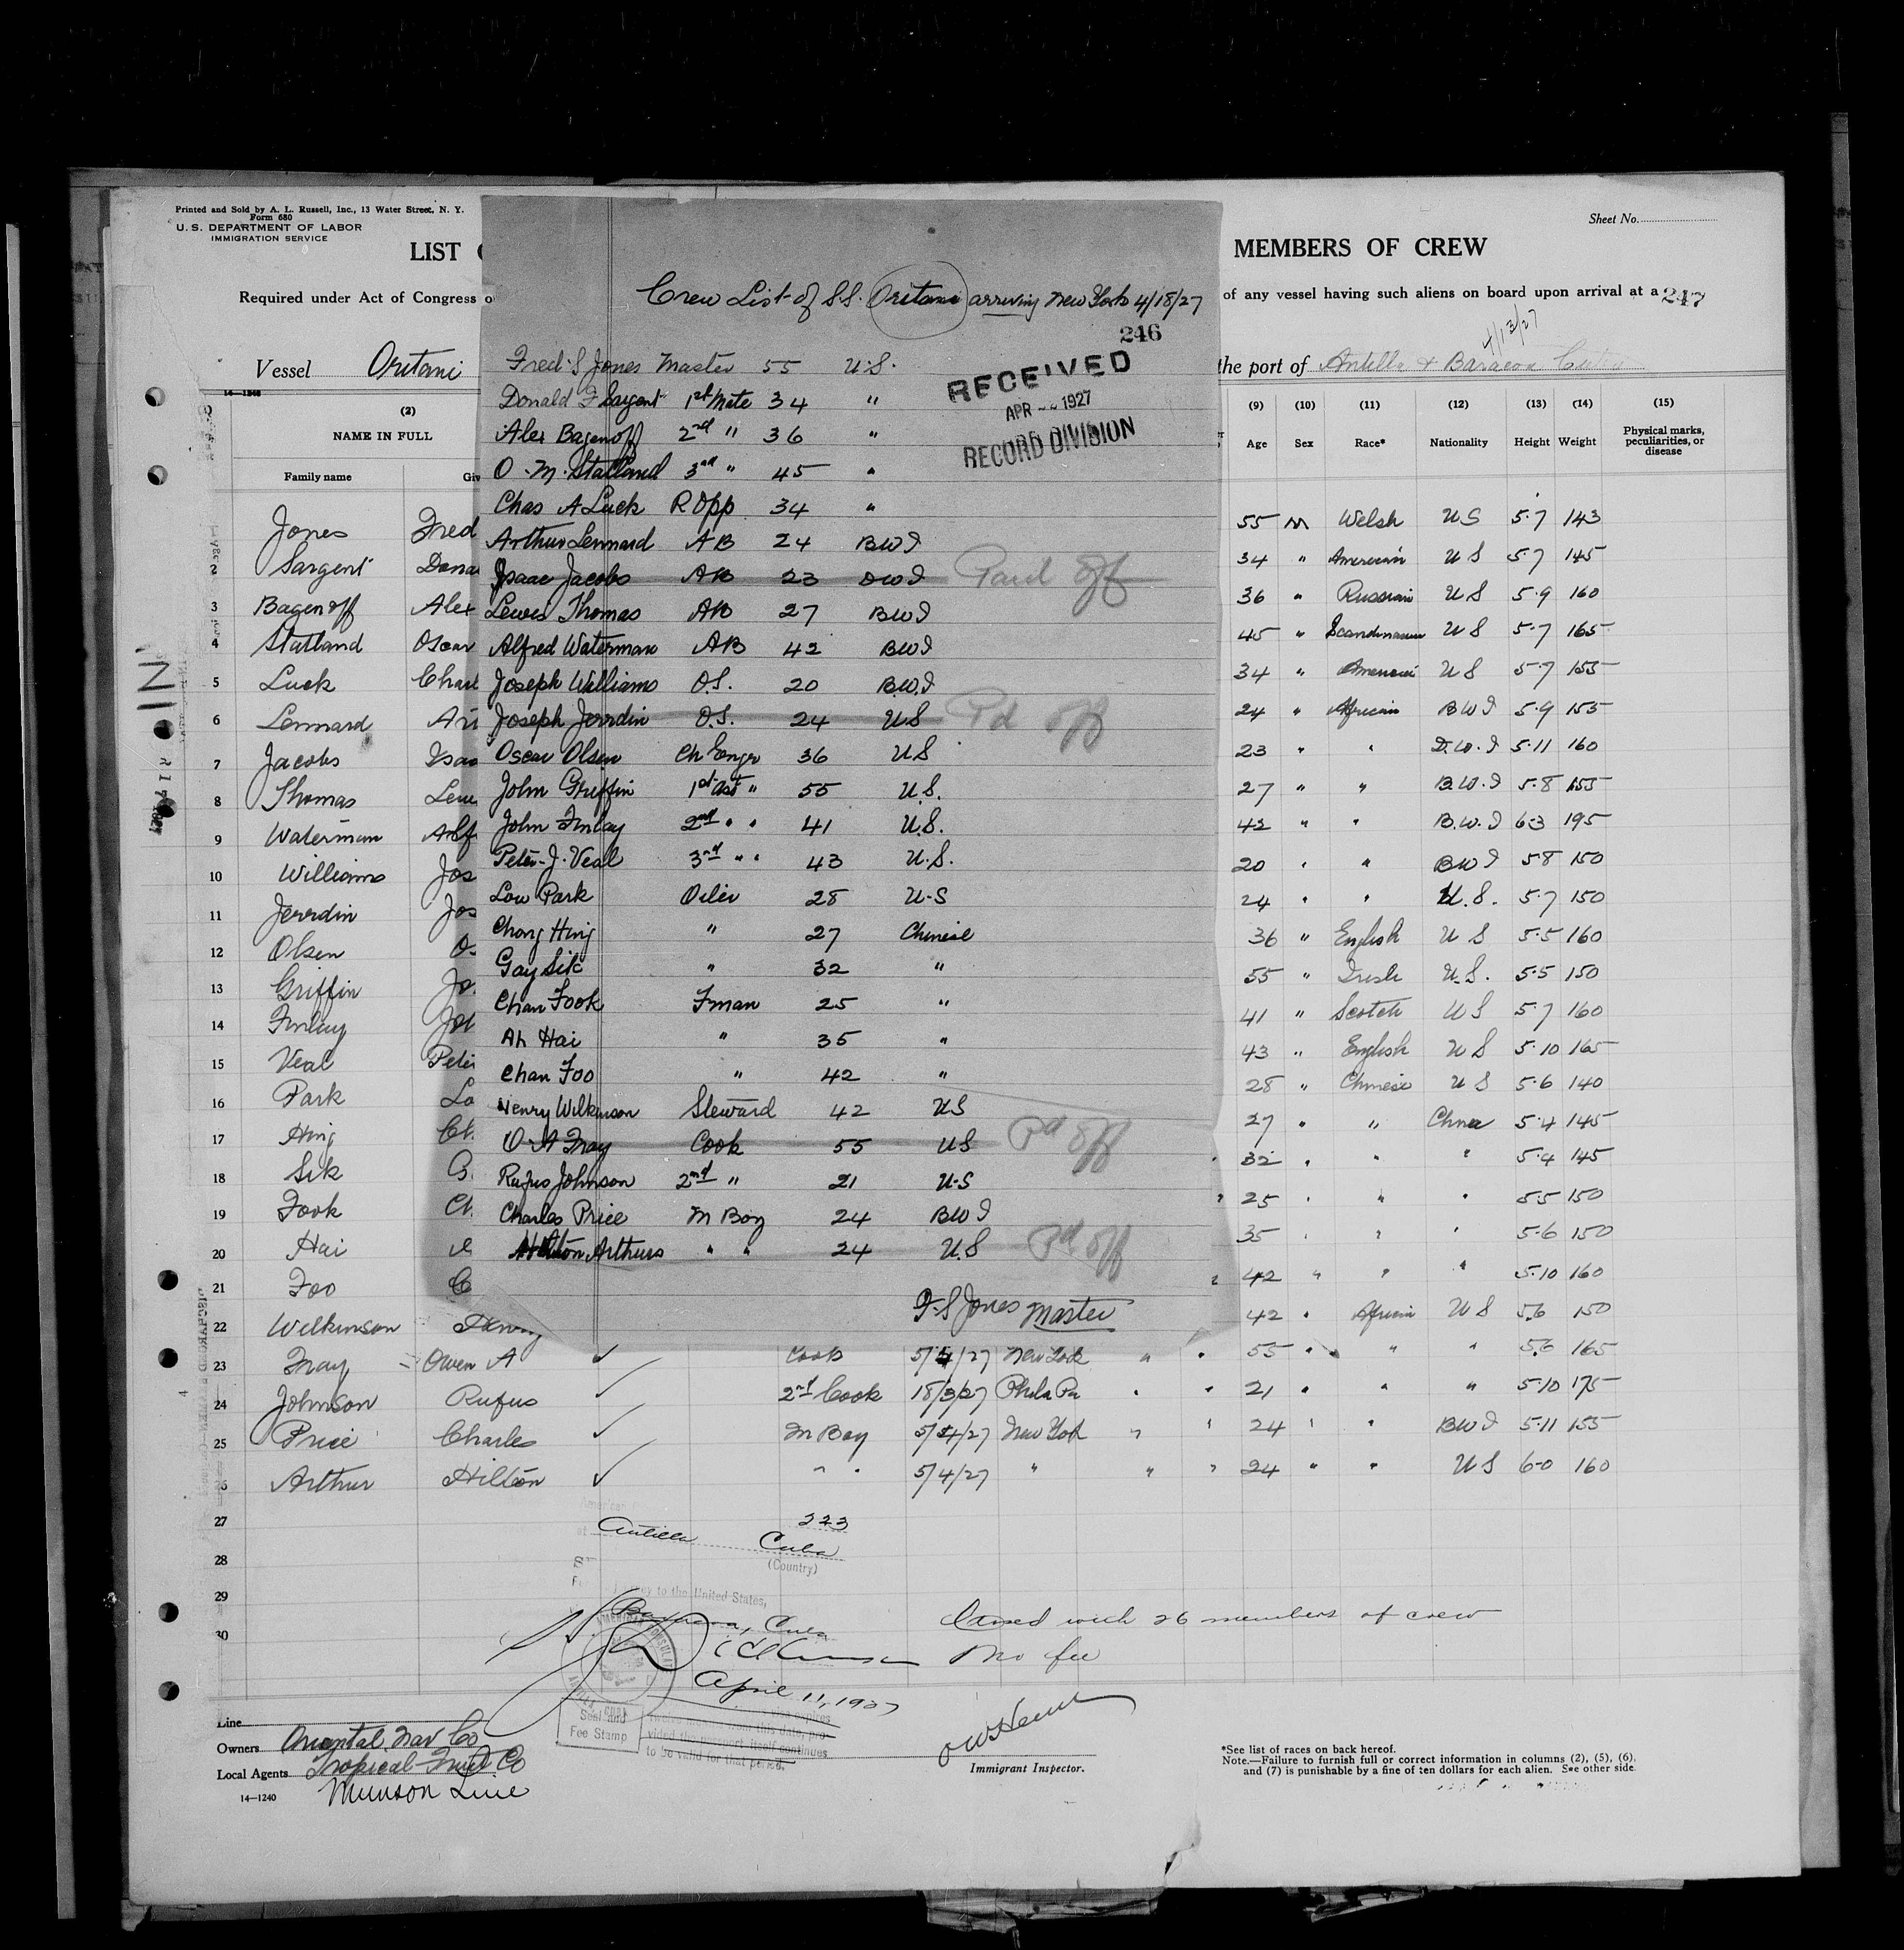 Printed and Sold by A. L. Russell, Inc., 13 Water Street, N. Y.
Form 680
U. S. DEPARTMENT OF LABOR
IMMIGRATION SERVICE
Sheet No.
LIST
MEMBERS OF CREW
Required under Act of Congress
of any vessel having such aliens on board upon arrival at a
247
4/13/27
Vessel Oritani
the port of Antilla & Baracoa Cuba
Crew List of S.S. Oritani arriving New York 4/18/27
246
RECEIVED
APR 1927
RECORD DIVISION
Fred S Jones Master 55 U.S.
Donald F Sargent 1st Mate 34 "
Alex Bagenoff 2nd " 36 "
O. M. Statland 3rd " 45 "
Chas A Luck R Opp 34 "
Arthur Lennard AB 24 BWI
Isaac Jacobs AB 23 DWI Paid off
Lewis Thomas AB 27 BWI
Alfred Waterman AB 42 BWI
Joseph Williams O.S. 20 B.W.I
Joseph Jerrdin O.S. 24 US Pd off
Oscar Olsen Ch Enger 36 US
John Griffin 1st Ast " 55 U.S.
John Finlay 2nd " " 41 U.S.
Peter J. Veal 3rd " " 43 U.S.
Low Park Oiler 28 U-S
Chong Hing " 27 Chinese
Gay Sik " 32 "
Chan Fook Fman 25 "
Ah Hai " 35 "
Chan Foo " 42 "
Henry Wilkinson Steward 42 US
O A Fray Cook 55 US Pd off
Rufus Johnson 2nd " 21 U-S
Charles Price M Boy 24 BWI
Hilton Arthurs " " 24 U.S Pd off
F. S Jones Master
14—1240
(2) (9) (10) (11) (12) (13) (14) (15)
NAME IN FULL Age Sex Race* Nationality Height Weight Physical marks, peculiarities, or disease
Family name
Jones Fred 55 M Welsh US 5-7 143
2 Sargent Dona 34 " American US 5-7 145
3 Bagenoff Alex 36 " Russian US 5-9 160
4 Statland Oscar 45 " Scandinavian US 5-7 165
5 Luck Charl 34 " American US 5-7 155
6 Lennard Art 24 " African BWI 5-9 155
7 Jacobs Isaa 23 " " D.W.I 5-11 160
8 Thomas Lew 27 " " B.W.I 5-8 155
9 Waterman Alf 42 " " B.W.I 6-3 195
10 Williams Jos 20 " " BWI 5-8 150
11 Jerrdin Jos 24 " " U.S. 5-7 150
12 Olsen Os 36 " English US 5-5 160
13 Griffin Jo 55 " Irish U.S. 5-5 150
14 Finlay Joh 41 " Scotch US 5-7 160
15 Veal Peter 43 " English US 5-10 165
16 Park Lo 28 " Chinese US 5-6 140
17 Hing Ch 27 " " China 5-4 145
18 Sik G 32 " " " 5-4 145
19 Fook Ch 25 " " " 5-5 150
20 Hai 35 " " " 5-6 150
21 Foo C 42 " " " 5-10 160
22 Wilkinson Henry 42 " African US 5-6 150
23 Fray Owen A Cook 5/4/27 New York " " 55 " " " 5-6 165
24 Johnson Rufus 2nd Cook 18/3/27 Phila Pa " " 21 " " " 5-10 175
25 Price Charles M Boy 5/4/27 New York " " 24 " " BWI 5-11 155
26 Arthur Hilton " " 5/4/27 " " " 24 " " US 6-0 160
27
28
29
30
223
Antilla Cuba
(Country)
to the United States,
Cuba
April 11, 1927
Seal and
Fee Stamp
from this date, pro-
vided the passport itself continues
to be valid for that period.
Closed with 26 members of crew
No fee
Immigrant Inspector.
Line
Owners Oriental Nav Co
Local Agents Tropical Fruit Co
Munson Line
14—1240
*See list of races on back hereof.
Note.—Failure to furnish full or correct information in columns (2), (5), (6),
and (7) is punishable by a fine of ten dollars for each alien. See other side.